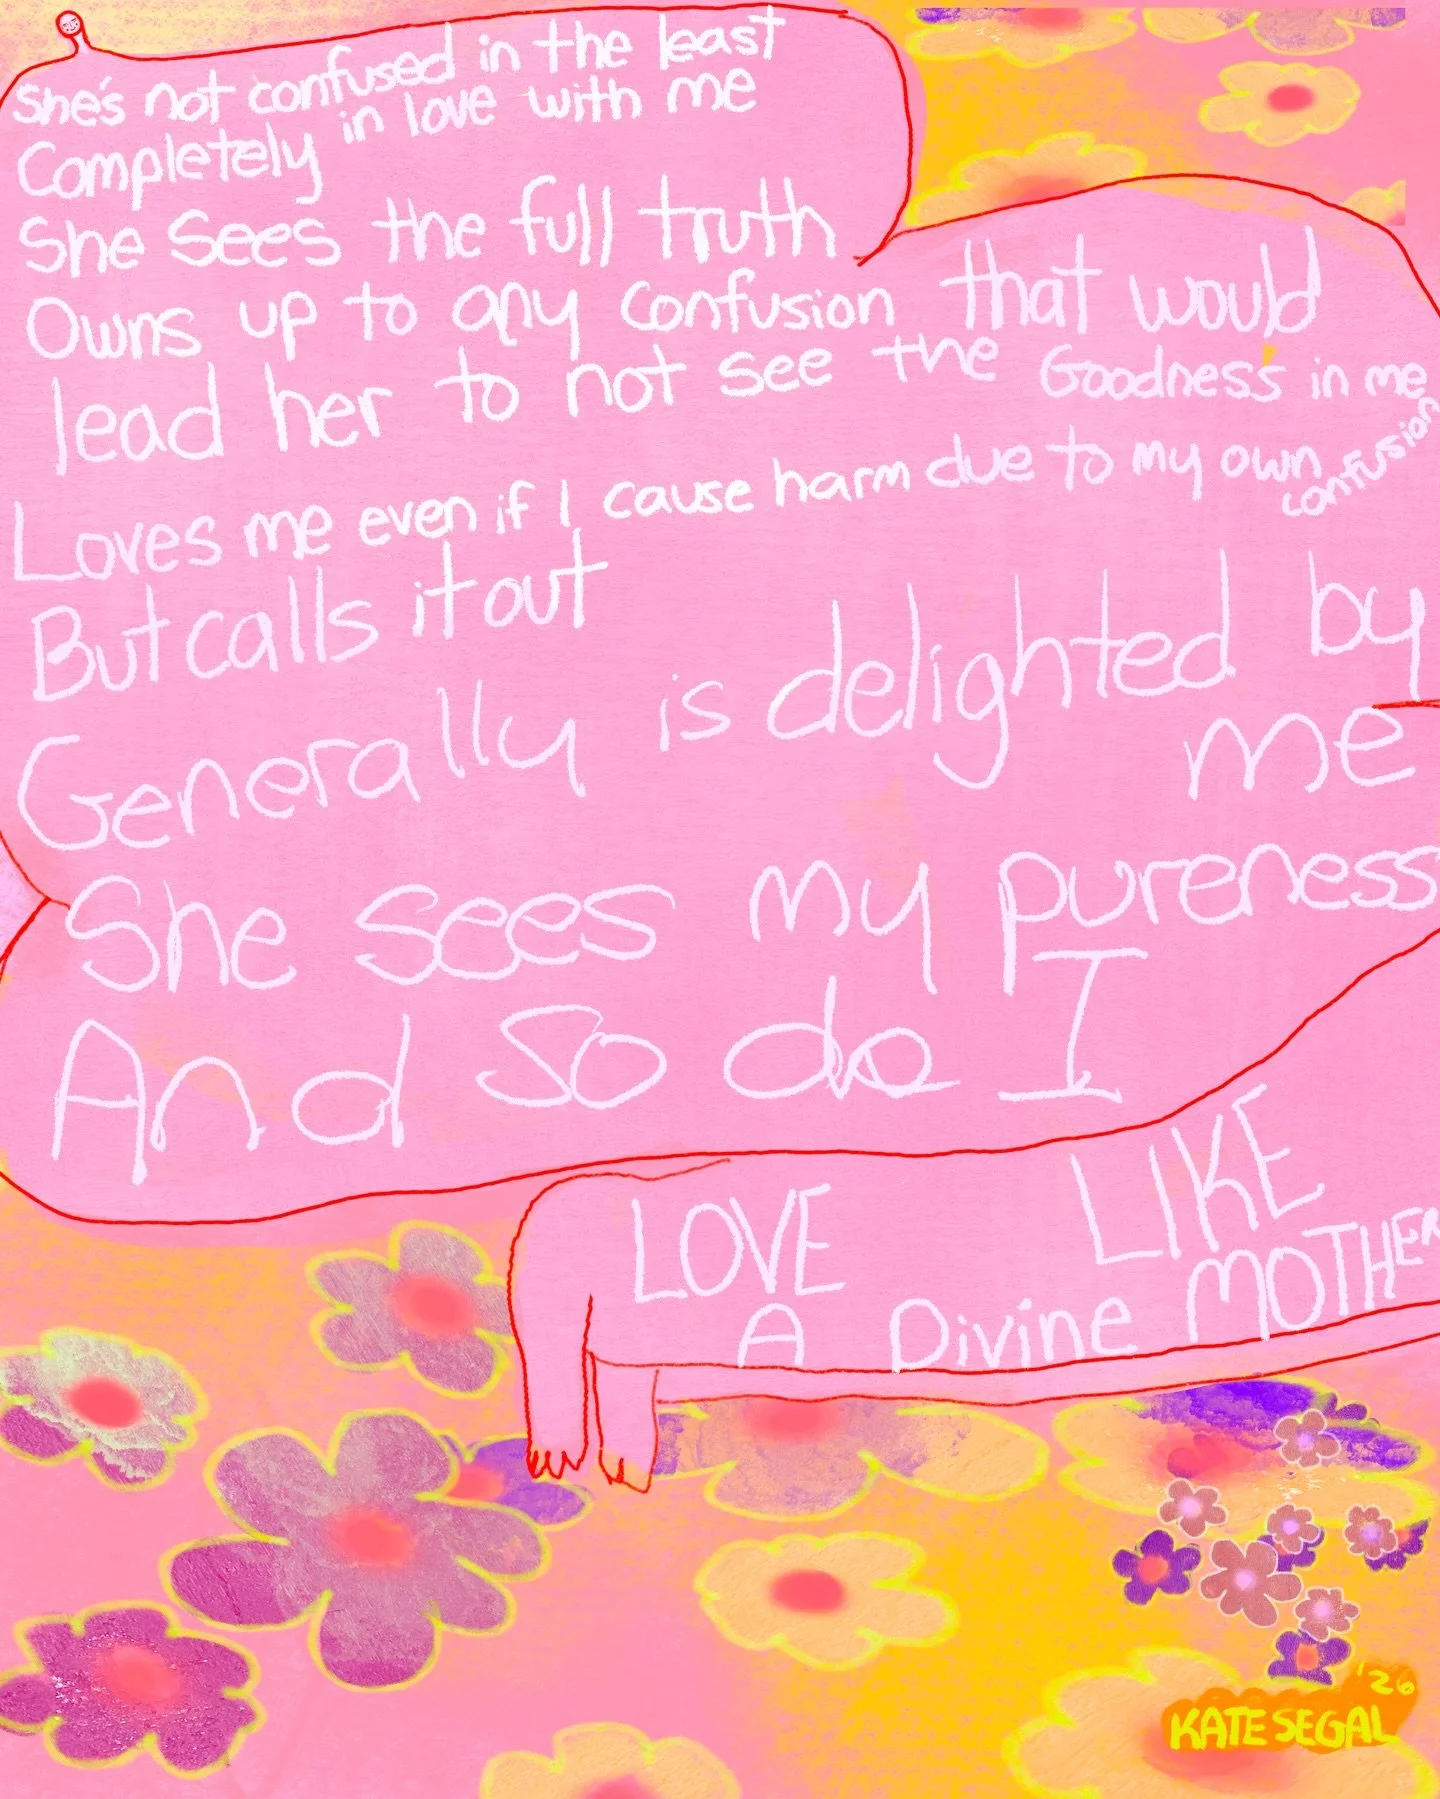 She's not confused in the least
Completely in love with me
She Sees the full truth
Owns up to any confusion that would
lead her to not see the Goodness in me
Loves me even if I cause harm due to my own confusion
But calls it out
Generally is delighted by
me
She sees my pureness
And So do I
LOVE LIKE
A Divine MOTHER
'26
KATE SEGAL